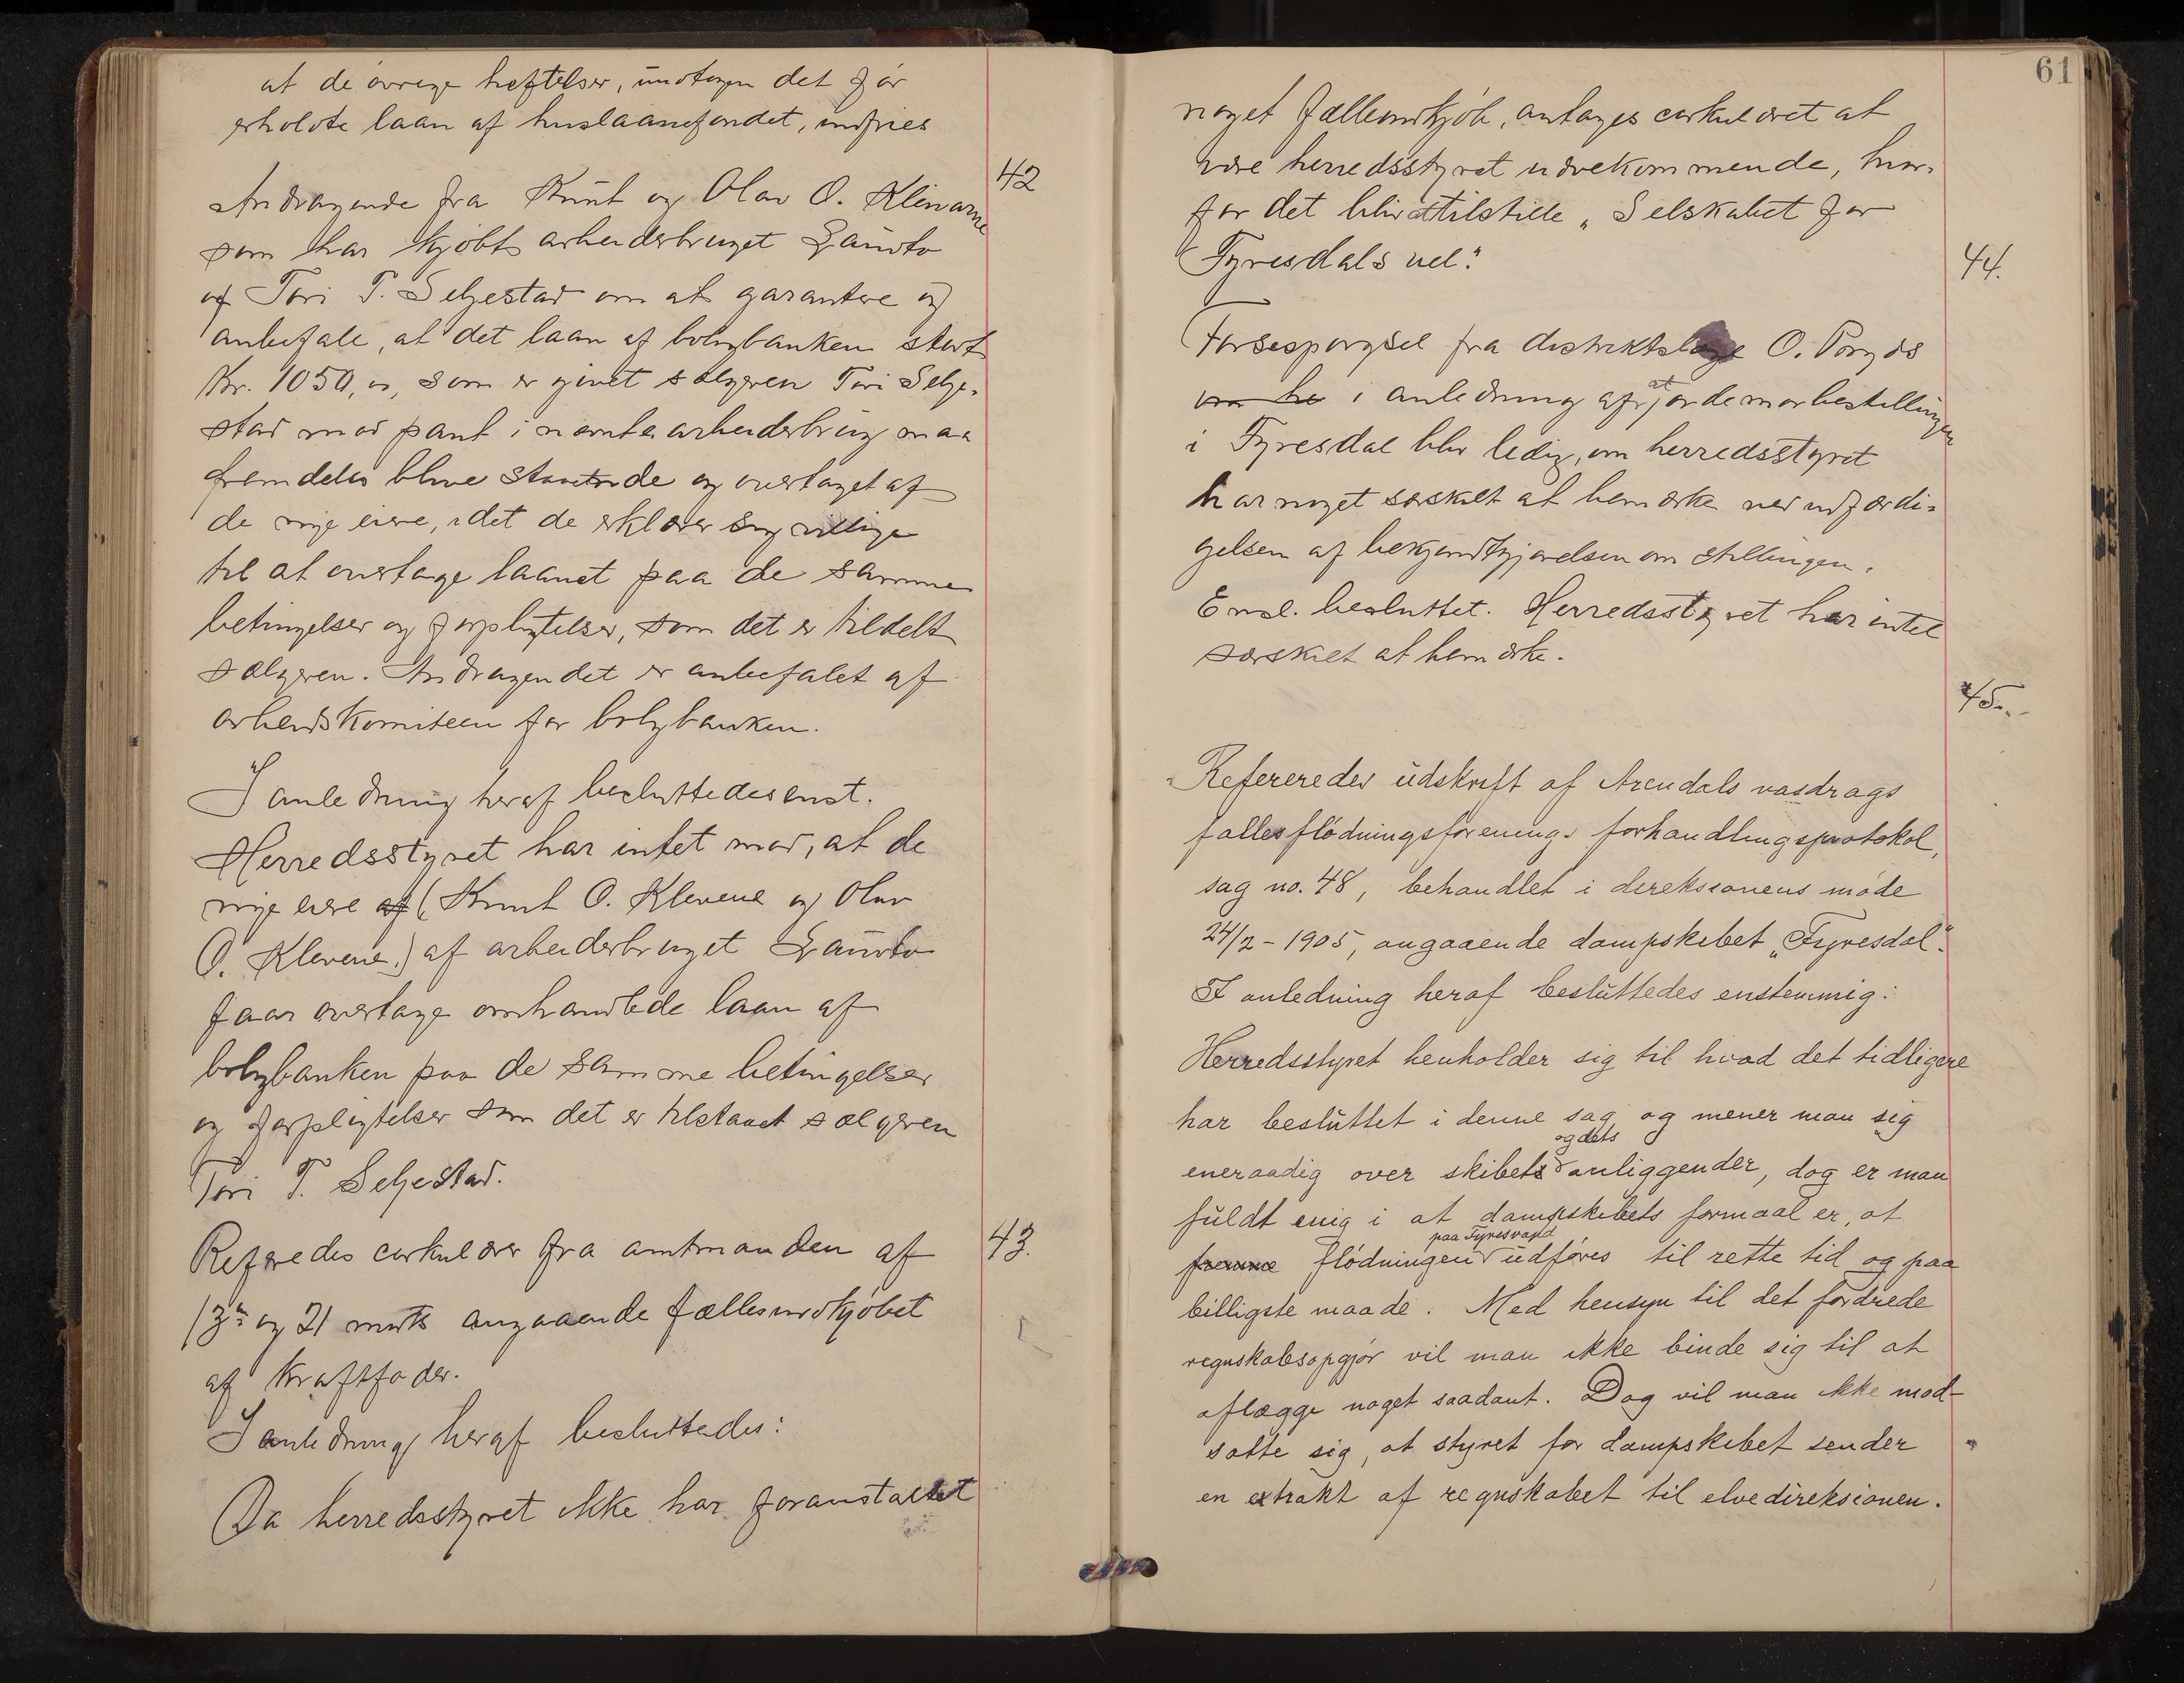 at de øvrige heftelser, undtagen det før
erholdte laan af huslaanefondet, indfries
42
Andragende fra Knut og Olav O. Klevane
som har kjøbt arbeiderbruget Lauvto
af Tori T. Seljestad om at garantere og
anbefale, at det laan af boligbanken stort
Kr. 1050,00, som er givet sælgeren Tori Selje-
stad mod pant i nævnte arbeiderbrug maa
fremdeles blive staaende og overtaget af
de nye eiere, idet de erklærer sig villige
til at overtage laanet paa de samme
betingelser og forpligtelser, som det er tildelt
sælgeren. Andragendet er anbefalet af
arbeidskomiteen for boligbanken.
I anledning heraf besluttedes enst.
Herredsstyret har intet mod, at de
nye eiere af (Knut O. Klevene og Olav
O. Klevene) af arbeiderbruget Lauvto
faar overtage omhandlede laan af
boligbanken paa de samme betingelser
og forpligtelser som det er tilstaaet sælgeren
Tori T. Seljestad.
43.
Referedes cirkulærer fra amtmanden af
13de og 21 marts angaaende fællesindkjøbet
af kraftfoder.
I anledning heraf besluttedes:
Da herredsstyret ikke har foranstaltet
61
noget fællesindkjøb, antages cirkulæret at
være herredsstyret uvedkommende, hvor-
for det blir at tilstille „Selskabet for
Fyresdals vel."
44.
Forsespørgsel fra distriktslæge O.
om he i anledning af at jordemorbestillingen
i Fyresdal blir ledig, om herredsstyret
har noget særskilt at bemærke ved udfærdi-
gelsen af bekjendtgjørelsen om stillingen.
Enst. besluttet. Herredsstyret har intet
særskilt at bemærke.
45.
Refereredes udskrift af Arendals vasdrags
fællesflødningsforenings forhandlingsprotokol,
sag no. 48, behandlet i direksionens møde
24/2 - 1905, angaaende dampskibet „Fyresdal".
I anledning heraf besluttedes enstemmig:
Herredsstyret henholder sig til hvad det tidligere
har besluttet i denne sag og mener man sig
eneraadig over skibets og dets anliggender, dog er man
fuldt enig i at dampskibets formaal er, at
fremme flødningen paa Fyresvand udføres til rette tid og paa
billigste maade. Med hensyn til det fordrede
regnskabsopgjør vil man ikke binde sig til at
aflægge noget saadant. Dog vil man ikke mod-
sætte sig, at styret for dampskibet sender
en extrakt af regnskabet til elvedireksionen.